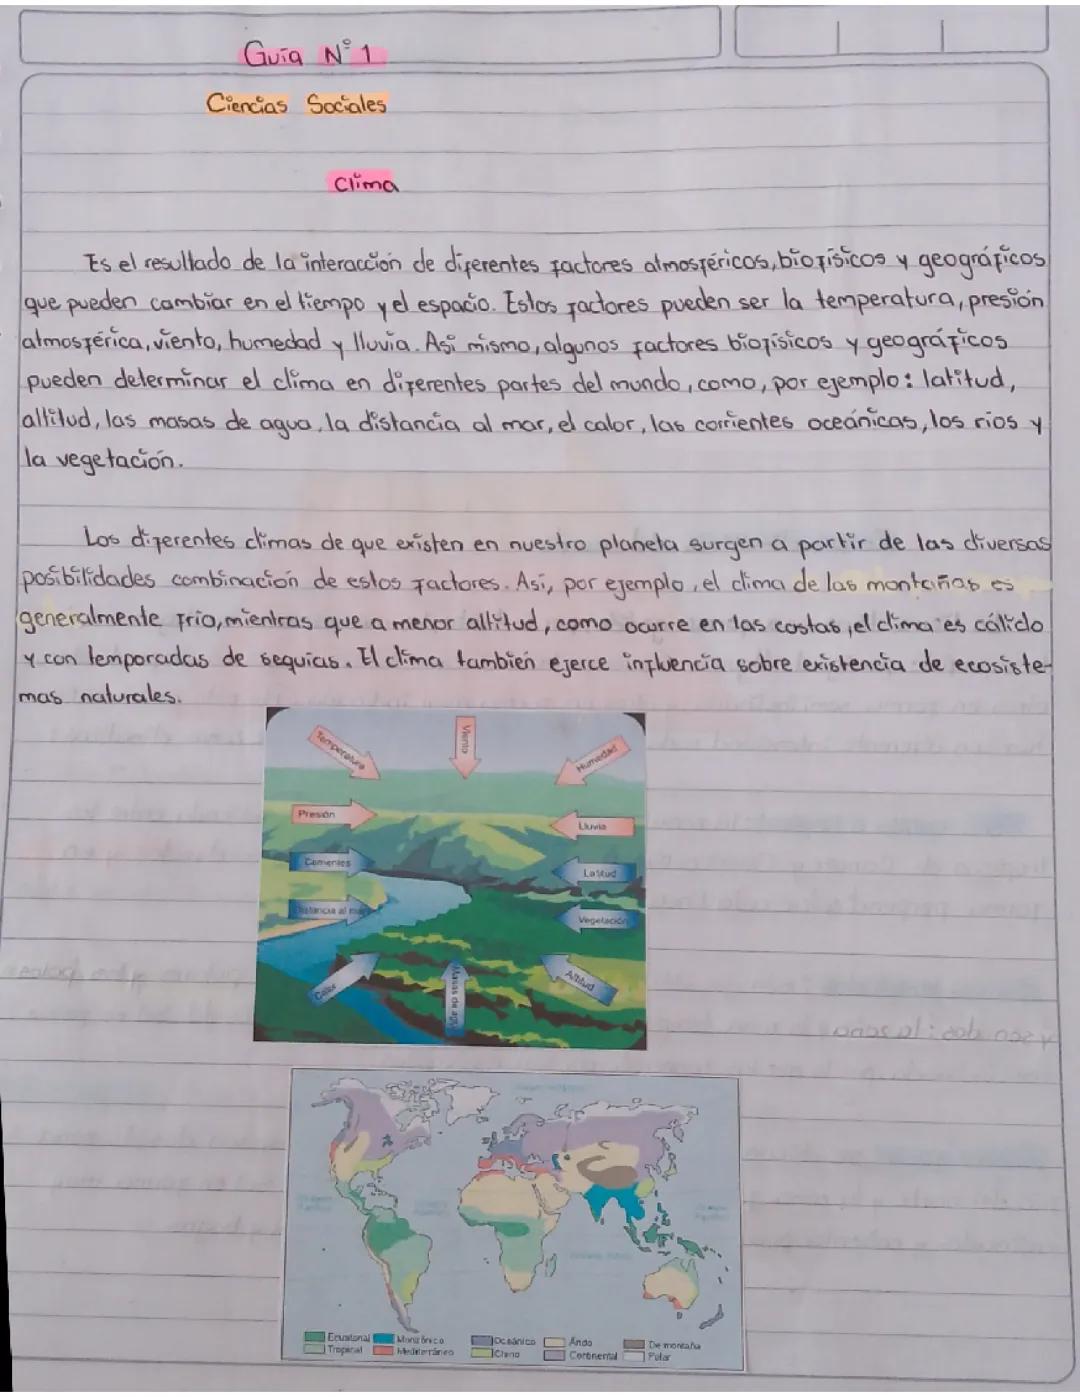 Guía N° 1
Ciencias Sociales
Clima
Es el resultado de la interacción de diferentes factores atmosféricos, biofísicos y geográficos
que pueden cambiar en el tiempo y el espacio. Estos factores pueden ser la temperatura, presión
atmosférica, viento, humedad y lluvia. Así mismo, algunos factores biofísicos y geográficos
pueden determinar el clima en diferentes partes del mundo, como, por ejemplo: latitud,
altitud, las masas de agua, la distancia al mar, el calor, las corrientes oceánicas, los rios y
la vegetación.
Los diferentes climas de que existen en nuestro planeta surgen a partir de las diversas
posibilidades combinación de estos factores. Así, por ejemplo, el clima de las montañas es
generalmente frio, mientras que a menor altitud, como ocurre en las costas, el clima es cálido
y con temporadas de sequias. El clima también ejerce influencia sobre existencia de ecosiste-
mas naturales.
Temperatura
Viento
Humedad
Presión
Lluvia
Corrientes
Latitud
Distancia al mar
Vegetación
Calor
Masas de agua
Altitud
Ecuatorial
Monzónico
Oceánico
Árido
De montaña
Tropical
Mediterráneo
Chino
Continental
Polar